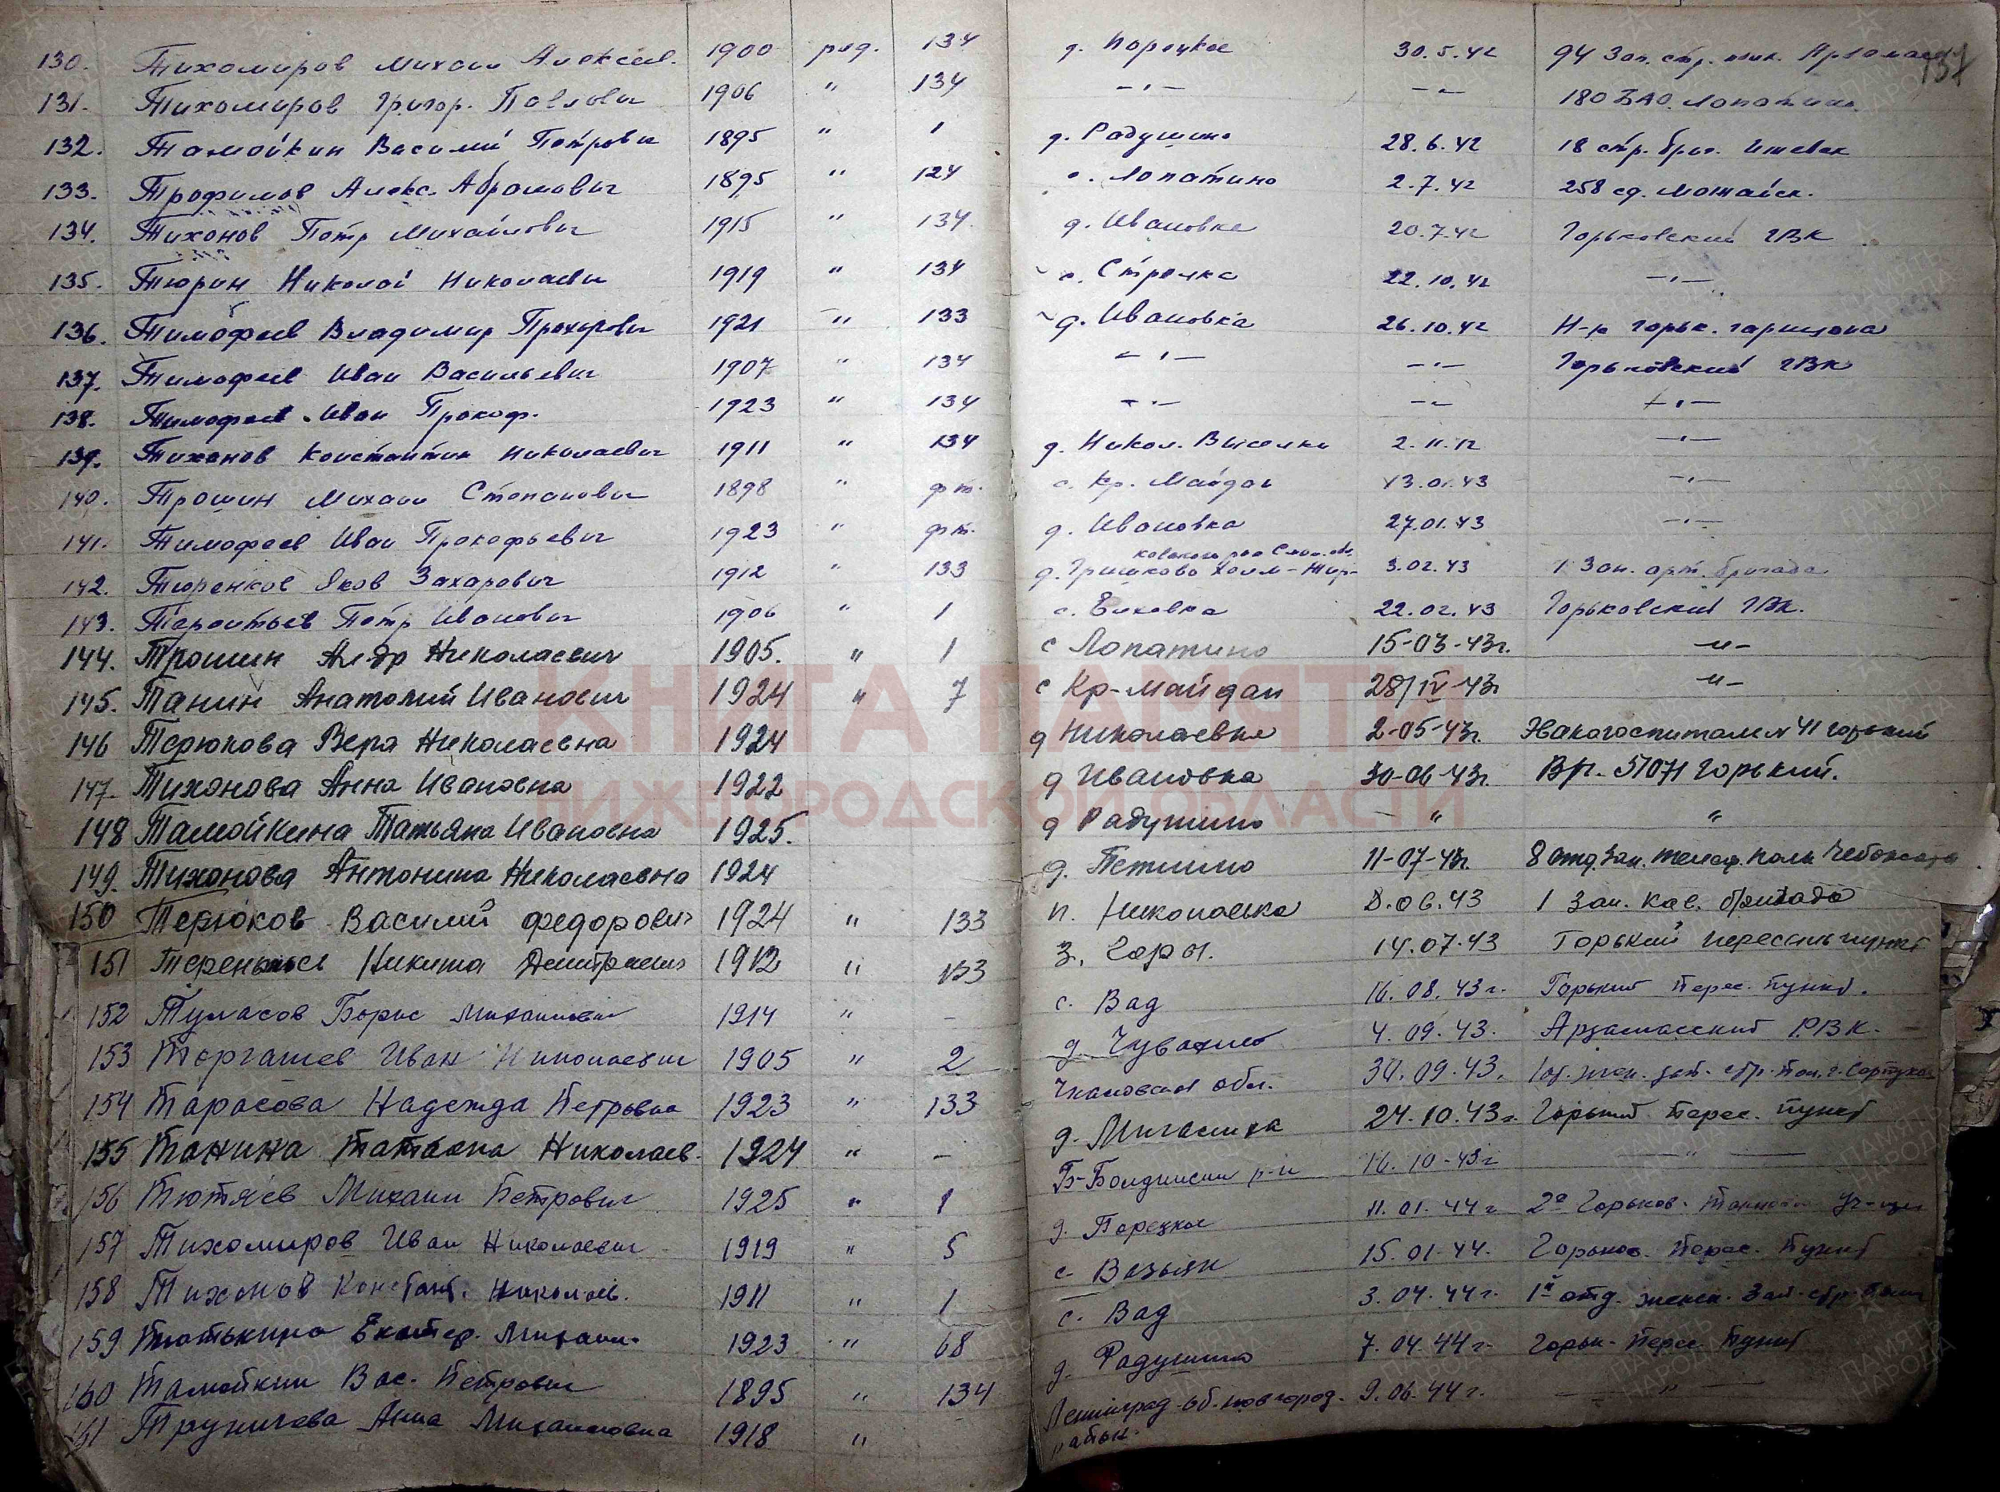 137
130. Тихомиров Михаил Алексеев. 1900 ряд. 134 д. Порецкое 30.5.42 94 Зап. стр. полк. Арзамас
131. Тихомиров Григор. Павлович 1906 " 134 –"– –"– 180 ЗАО. Лопатино
132. Тамойкин Василий Петрович 1895 " 1 д. Радушино 28.6.42 18 стр. бриг. Ижевск
133. Трофимов Алекс. Абрамович 1895 " 124 с. Лопатино 2.7.42 258 сд. Можайск.
134. Тихонов Петр Михайлович 1915 " 134 д. Ивановка 20.7.42 Горьковский ГВК
135. Тюрин Николай Николаевич 1919 " 134 с. Стрелка 22.10.42 –"–
136. Тимофеев Владимир Прохорович 1921 " 133 д. Ивановка 26.10.42 Н-к горьк. гарнизона
137. Тимофеев Иван Васильевич 1907 " 134 –"– –"– Горьковский ГВК
138. Тимофеев Иван Прокоф. 1923 " 134 –"– –"– –"–
139. Тихонов Константин Николаевич 1911 " 134 д. Никол. Выселки 2.11.42 –"–
140. Трошин Михаил Степанович 1898 " фт. с. Кр. Майдан 13.01.43 –"–
141. Тимофеев Иван Прокофьевич 1923 " фт. д. Ивановка 27.01.43 –"–
142. Тюренков Яков Захарович 1912 " 133 д. Гришково Холм-Жирковского р-на Смол. об. 3.02.43 1 Зап. арт. бригада
143. Терентьев Петр Иванович 1906 " 1 с. Елховка 22.02.43 Горьковский ГВК.
144. Трошин Ал-др Николаевич 1905. " 1 с Лопатино 15-03-43г. –"–
145. Танин Анатолий Иванович 1924 " 7 с Кр-Майдан 28/IV-43г –"–
146 Терюкова Вера Николаевна 1924 д Николаевка 2-05-43г. Эвакогоспиталь № 41 горький
147. Тихонова Анна Ивановна 1922 д Ивановка 30-06-43г. Вр.- 5107И Горький.
148 Тамойкина Татьяна Ивановна 1925. д Радушино – " "
149. Тихонова Антонина Николаевна 1924 д. Петлино 11-07-43г. 8 отд. Зап. телеф. полк Чебоксары
150 Терюков Василий Федорович 1924 " 133 п. Николаевка 8.06.43 1 Зап. кав. бригада
151 Терентьев Никита Дмитриевич 1912 " 133 З. Горы. 14.07.43 Горький пересыльн пункт
152 Тумасов Борис Михайлович 1914 " – с. Вад 16.08.43г. Горький Перес. пункт.
153 Торгашев Иван Николаевич 1905 " 2 д. Чувахлей 4.09.43. Арзамасский Р.В.К.
154 Тарасова Надежда Петровна 1923 " 133 Чкаловская обл. 30.09.43. 1от. жен. зап. стр. пол. г. Серпухов
155 Танина Татьяна Николаев. 1924 " – д. Мигалиха 24.10.43г. Горький Перес. пункт
156 Тютяев Михаил Петрович 1925 " 1 Б-Болдински р-н 16.10-43г –"–
157 Тихомиров Иван Николаевич 1919 " 5 д. Порецкое 11.01.44г 2е Горьков. Танков. Уч-ще
158 Тихонов Констант. Николаев. 1911 " 1 с. Вазьян 15.01.44. Горьков. Перес. Пункт
159 Тютькина Екатер. Михайл. 1923 " 68 с. Вад 3.04.44г. 1й отд. женск. Зап. стр. Полк
160 Тамойкин Вас. Петрович 1895 " 134 д. Радушино 7.04.44г. Горьк. Перес. Пункт
161 Труничева Анна Михайловна 1918 " Ленинград. об. новгород. район. 9.06.44г. –"–
КНИГА ПАМЯТИ
НИЖЕГОРОДСКОЙ ОБЛАСТИ